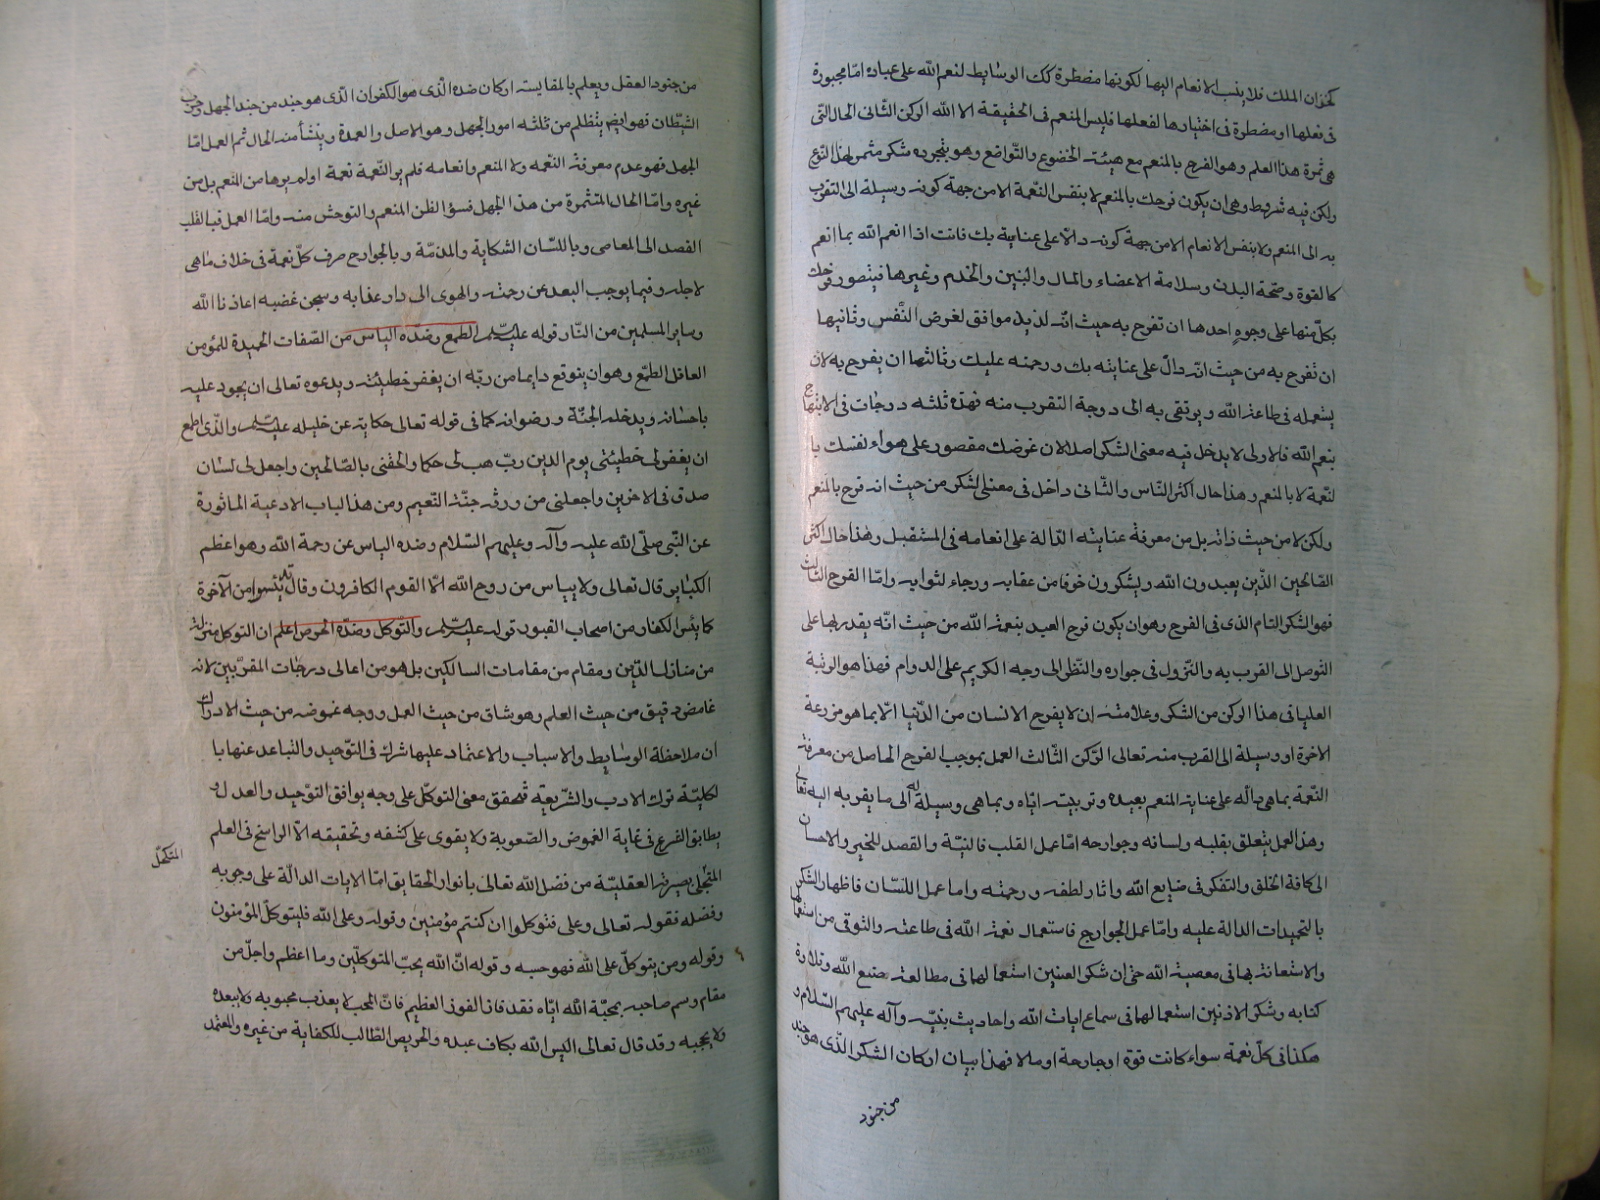 كخزان الملك فلا ينسب الانعام اليها لكونها مضطرة كك الوسايط لنعم الله على عباده اما مجبورة
فى فعلها او مضطرة فى اختيارها لفعلها فليس المنعم فى الحقيقة الا الله الركن الثانى الحال التى
هى ثمرة هذا العلم وهو الفرح بالمنعم مع هيئة الخضوع والتواضع وهو بتجرده شكر مثمر لهذا النوع
ولكن فيه شروط وهى ان يكون فرحك بالمنعم لا بنفس النعمة الا من جهة كونه وسيلة الى التقرب
به الى المنعم ولا بنفس الانعام الا من جهة كونه دالا على عنايته بك فانت اذا انعم الله بما انعم
كالقوة وصحة البدن وسلامة الاعضاء والمال والبنين والخدم وغيرها فيتصور فرحك
بكل منها على وجوه احدها ان تفرح به حيث انه لذيذ موافق لغرض النفس وثانيها
ان تفرح به من حيث انه دال على عنايته بك ورحمته عليك وثالثها ان يفرح به لان
يستعمله فى طاعة الله ويرتقى به الى درجة التقرب منه فهذه ثلثه درجات فى الابتهاج
بنعم الله فالاولى لا يدخل فيه معنى الشكر اصلا لان غرضك مقصور على هواء نفسك با
لنعمة لا بالمنعم وهذا حال اكثر الناس والثانى داخل فى معنى الشكر من حيث انه فرح بالمنعم
ولكن لا من حيث ذاته بل من معرفة عنايته الدالة على انعامه فى المستقبل وهذا حال اكثر
الصالحين الذين يعبدون الله ويشكرون خوفا من عقابه ورجاء لثوابه واما الفرح الثالث
فهو الشكر التام الذى فى الفرح وهو ان يكون فرح العبد بنعمة الله من حيث انه يقدر بها على
التوصل الى القرب به والنزول فى جواره والنظر الى وجه الكريم على الدوام فهذا هو الرتبة
العليا فى هذا الركن من الشكر وعلامته ان لا يفرح الانسان من الدنيا الا بما هو مزرعة
الاخرة او وسيلة الى القرب منه تعالى الركن الثالث العمل بموجب الفرح الحاصل من معرفة
النعمة بما هى دالة على عناية المنعم بعبده وتربيته اياه وبما هى وسيلة له الى ما يقربه اليه تعالى
وهذا العمل يتعلق بقلبه ولسانه وجوارحه اما عمل القلب فالنية والقصد للخير والاحسان
الى كافة الخلق والتفكر فى صنايع الله واثار لطفه ورحمته واما عمل اللسان فاظهار الشكر
بالتحميدات الدالة عليه واما عمل الجوارح فاستعمال نعمة الله فى طاعته والتوقى من استعمالها
والاستعانة بها فى معصية الله حتى ان شكر العينين استعمالهما فى مطالعة صنيع الله وتلاوة
كتابه وشكر الاذنين استعمالهما فى سماع ايات الله واحاديث نبيه وآله عليهم السلام و
هكذا فى كل نعمة سواء كانت قوة او جارحة او مالا فهذا بيان اركان الشكر الذى هو جند
من جنود
من جنود العقل ويعلم بالمقايسة اركان ضده الذى هو الكفران الذى هو جند من جند الجهل وحزب
الشيطان فهو ايضا ينتظم من ثلثه امور الجهل وهو الاصل والعمدة وينشأ منه الحال ثم العمل اما
الجهل فهو عدم معرفة النعمة ولا المنعم وانعامه فلم ير النعمة نعمة او لم يرها من المنعم بل من
غيره واما الحال المثمرة من هذا الجهل فسؤ الظن المنعم والتوحش منه واما العمل فبالقلب
القصد الى المعاصى وباللسان الشكاية والمذمة وبالجوارح صرف كل نعمة فى خلاف ما هى
لاجله وفيما يوجب البعد عن رحمته والهوى الى دار عذابه وسجن غضبه اعاذنا الله
وساير المسلمين من النار قوله عليه السلام الطمع وضده الياس من الصفات الحميدة للمؤمن
العاقل الطمع وهو ان يتوقع دايما من ربه ان يغفر خطيئته ويدعوه تعالى ان يجود عليه
باحسانه ويدخله الجنة ورضوانه كما فى قوله تعالى حكاية عن خليله عليه السلام والذى اطمع
ان يغفر لى خطيئتى يوم الدين رب هب لى حكما والحقنى بالصالحين واجعل لى لسان
صدق فى الاخرين واجعلنى من ورثه جنة النعيم ومن هذا لباب الادعية الماثورة
عن النبى صلى الله عليه وآله وعليهم السلام وضده الياس عن رحمة الله وهو اعظم
الكبايرو قال تعالى ولا ييياس من روح الله الا القوم الكافرون وقال قد يئسوا من الآخرة
كما يئس الكفار من اصحاب القبور قوله عليه السلام والتوكل وضده الحرص اعلم ان التوكل منزلة
من منازل الدين ومقام من مقامات السالكين بل هو من اعالى درجات المقربين لانه
غامض دقيق من حيث العلم وهو شاق من حيث العمل ووجه غموضه من حيث الادراك
ان ملاحظة الوسايط والاسباب والاعتماد عليها شرك فى التوحيد والتباعد عنها با
لكلية ترك الادب والشريعة فتحقق معنى التوكل على وجه يوافق التوحيد والعدل و
يطابق الشرع فى غاية الغموض والصعوبة ولا يقوى على كشفه وتحقيقه الا الراسخ فى العلم
المتكحل
المتجلى بصيرته العقلية من فضل الله تعالى بانوار الحقايق اما الايات الدالة على وجوبه
وفضله فقوله تعالى وعلى فتوكلوا ان كنتم مؤمنين وقوله وعلى الله فليتوكل المؤمنون
وقوله ومن يتوكل على الله فهو حسبه وقوله ان الله يحب المتوكلين وما اعظم واجل من
مقام وسم صاحبه بمحبة الله اياه فقد فاز الفوز العظيم فان المحب لا يعذب محبوبه ولا يبعده
ولا يحجبه وقد قال تعالى اليس الله بكاف عبده والحريص الطالب للكفاية من غيره والمعتمد